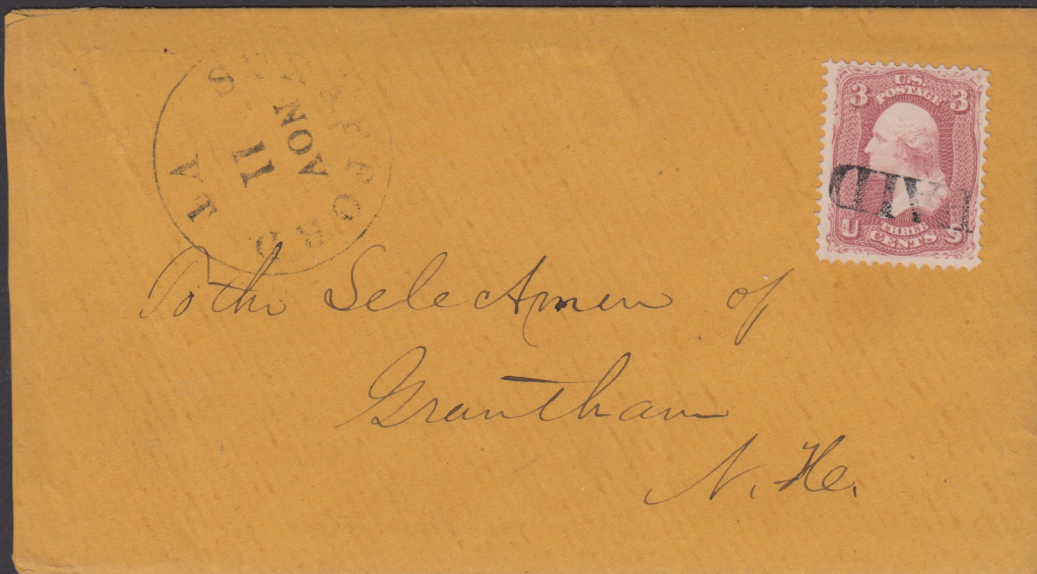 STRAFFORD VT
NOV
11
3 U.S. 3
POSTAGE
PAID
U THREE S
CENTS
To the Selectmen of
Grantham
N. H.